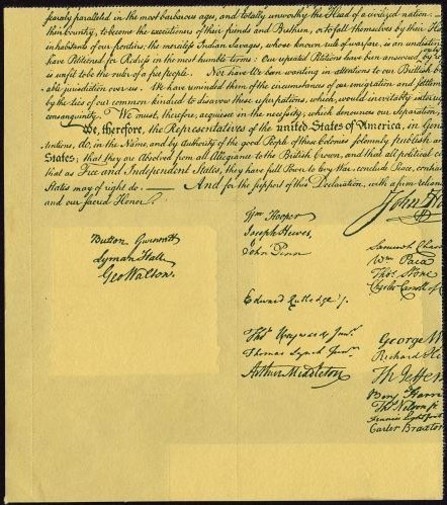 scarcely paralleled in the most barbarous ages, and totally unworthy the Head of a civilized nation. —
their Country, to become the executioners of their friends and Brethren, or to fall themselves by their Ha
inhabitants of our frontiers, the merciless Indian Savages, whose known rule of warfare, is an undistingu
have Petitioned for Redress in the most humble terms: Our repeated Petitions have been answered by
is unfit to be the ruler of a free people. Nor have We been wanting in attentions to our Brittish b
able jurisdiction over us. We have reminded them of the circumstances of our emigration and settlem
by the ties of our common kindred to disavow these usurpations, which, would inevitably interru
consanguinity. We must, therefore, acquiesce in the necessity, which denounces our Separation,
We, therefore, the Representatives of the united States of America, in Gen
lonies, do, in the Name, and by Authority of the good People of these Colonies, solemnly publish an
States; that they are Absolved from all Allegiance to the British Crown, and that all political c
that as Free and Independent States, they have full Power to levy War, conclude Peace, contrac
States may of right do. — And for the support of this Declaration, with a firm relian
and our sacred Honor.
John Ha
Button Gwinnett
Lyman Hall
Geo Walton.
Wm Hooper
Joseph Hewes,
John Penn
Edward Rutledge /.
Thos Heyward Junr.
Thomas Lynch Junr.
Arthur Middleton
Samuel Chas
Wm Paca
Thos Stone
Charles Carroll of C
George W
Richard He
Th Jeffer
Benj Harri
Thos Nelson jr
Francis Lightfoot
Carter Braxton